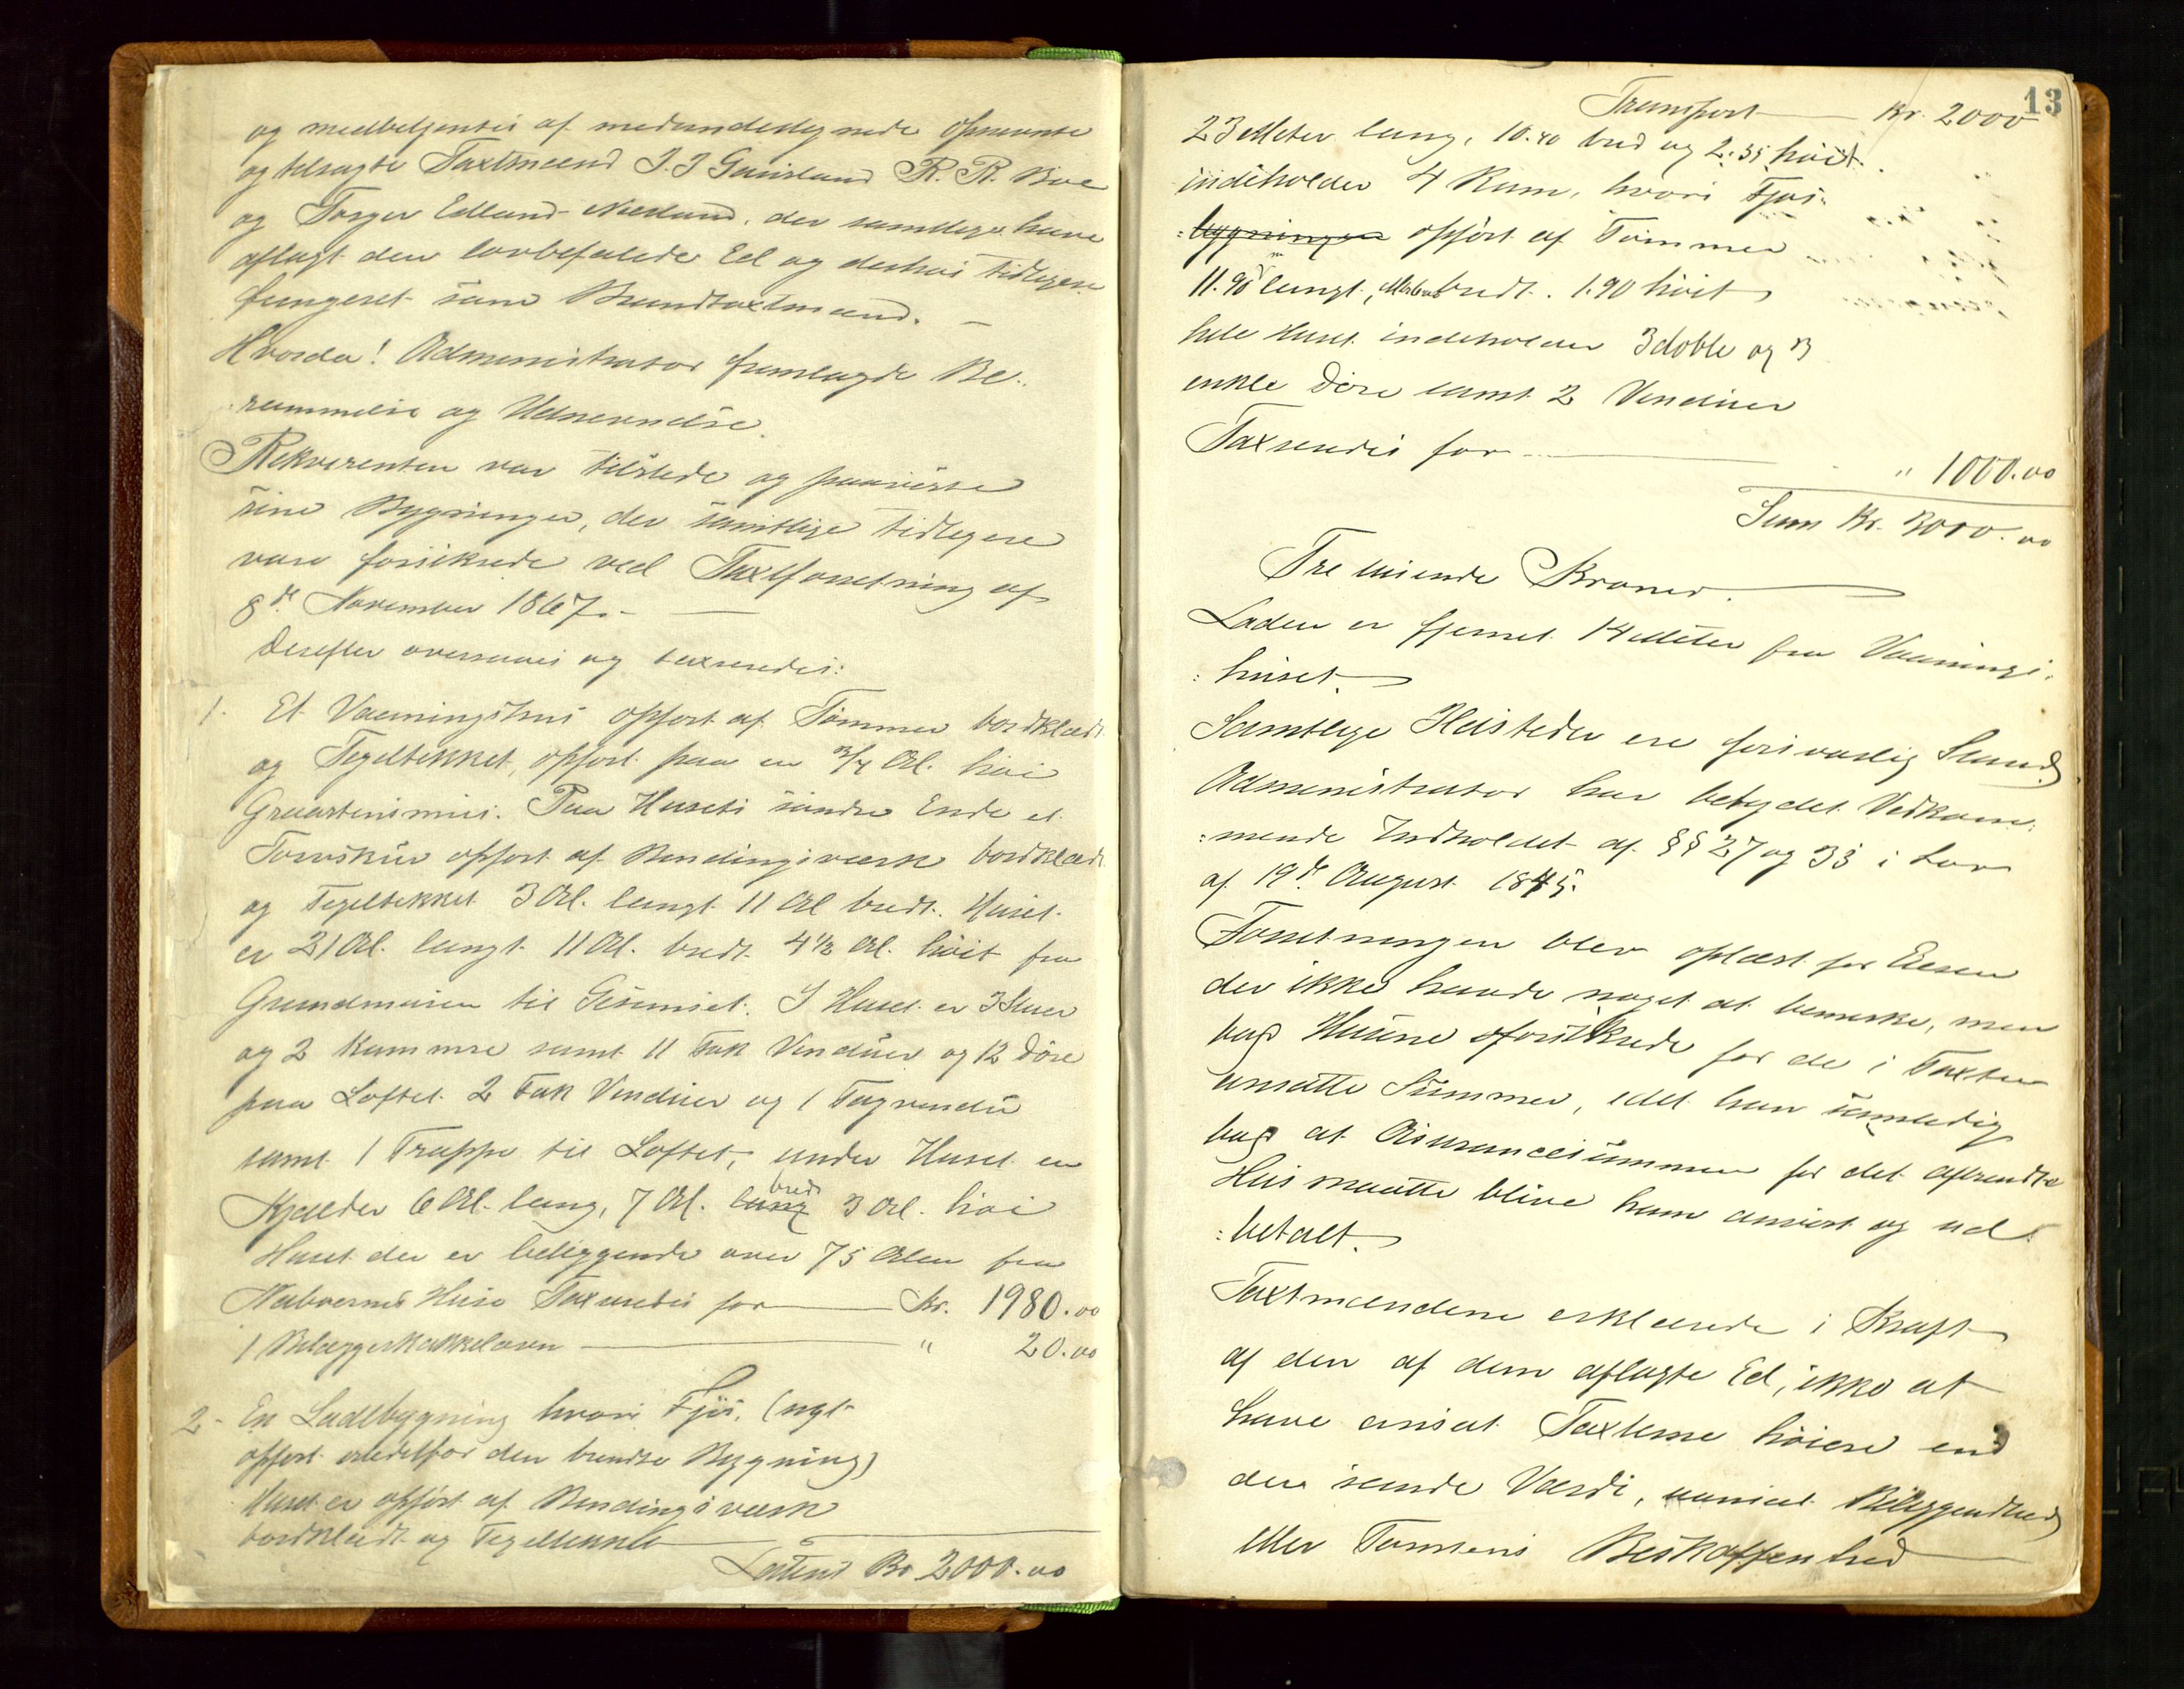 og medbetjentes af medundertegnede opnævnte
og tilsagte Taxtmænd I. I Gausland R. R. Boe
og Torger Edland Nærland, der samtlige have
aflagt den lovbefalede Ed og derhos tidligere
fungeret som Brandtaxtmænd. —
Hvorda! Administrator fremlagde Be-
rammelse og Udnævnelse.
Rekvirenten var tilstede og paaviste
sine Bygninger, der samtlige tidligere
vare forsikrede ved Taxtforretning af
8de November 1867. —
Derefter oversaaes og taxeredes:
1. Et Vaaningshus opført af Tømmer bordklædt
og Tegltækket, opført paa en 3/4 Al. høi
Graastensmur. Paa Husets søndre Ende et
Torvskur opført af Bindingsværk bordklædt
og Tegltækket 3 Al. langt 11 Al bredt. Huset
er 21 Al. langt 11 Al. bredt 4 1/2 Al. høit fra
Grundmuren til Gesimset. I Huset er 3 Stuer
og 2 Kammere samt 11 Fak Vinduer og 12 Døre
paa Loftet 2 Fak Vinduer og 1 Tagvindu
samt 1 Trappe til Loftet, under Huset en
Kjælder 6 Al. lang, 7 Al. lang bred 3 Al. høi
Huset der er beliggende over 75 Alen fra
Naboernes Huse Taxeredes for — Kr. 1980.00
1 Bilæggerkakkelovn — " 20.00
2. En Ladebygning hvori Fjøs, (nyt
opført istedetfor den brændte Bygning)
Huset er opført af Bindingsværk
bordklædt og Tegltækket
Latus Kr 2000.00
13
Transport — Kr. 2000
23 Meter lang, 10.40 bred og 2.35 høit.
indeholder 4 Rum, hvori Fjøs-
:bygningen opført af Tømmer
11.90 m langt, bredt. 1.90 høit
hele Huset indeholder 3 doble og 3
enkle Døre samt 2 Vinduer
Taxeredes for — " 1000.00
Sum Kr. 3000.00
Tre tusende Kroner.
Laden er fjernet 14 Meter fra Vaanings-
:huset.
Samtlige Ildsteder ere forsvarlig Stand
Administrator har betydet Vedkom-
:mende Indholdet af §§ 27 og 33 i Lov
af 19de August 1845.
Forretningen blev oplæst for Eieren
der ikke havde noget at bemerke, men
bad Husene forsikrede for de i Taxten
ansatte Summer, idet han samtidig
bad at Assurancesummen for det afbrændte
Hus maatte blive ham anvist og ud-
:betalt.
Taxtmændene erklærede i Kraft
af den af dem aflagte Ed, ikke at
have ansat Taxterne høiere end
den sande Værdi, uanset Beliggenhed
eller Tomtens Beskaffenhed